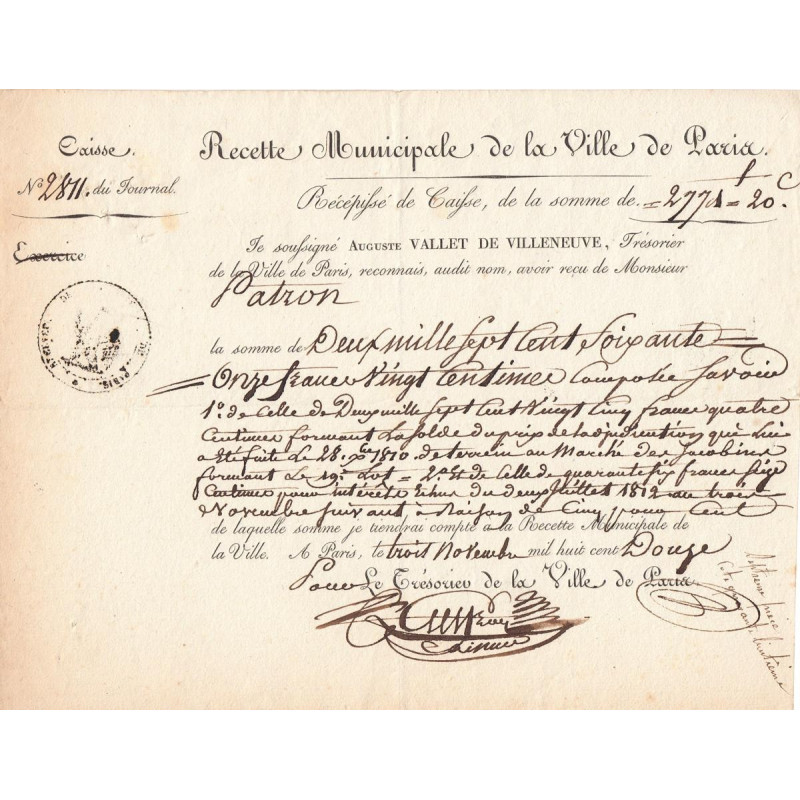 Caisse.
Nº 2811. du Journal.
Exercice
Recette Municipale de la Ville de Paris.
Récépissé de Caisse, de la somme de = 2771 f = 20. C
Je soussigné AUGUSTE VALLET DE VILLENEUVE, Trésorier
de la Ville de Paris, reconnais, audit nom, avoir reçu de Monsieur
Patron
la somme de Deux mille Sept Cent Soixante
= Onze francs Vingt Centimes Composée Savoir
1º. de Celle de Deux mille Sept Cent Vingt Cinq francs quatre
Centimes formant la Solde du prix de l'adjudication qui lui
a Eté faite Le 28. Xbre 1810 de terrein au Marché des Jacobins
formant Le 19e. Lot = 2º. Et de Celle de quarante Six francs Seize
Centimes pour intérêts Echus du deux Juillet 1812 au trois
Novembre Suivant, à Raison de Cinq pour Cent
de laquelle somme je tiendrai compte à la Recette Municipale de
la Ville. A Paris, le trois Novembre mil huit cent Douze
Pour Le Trésorier de la Ville de Paris